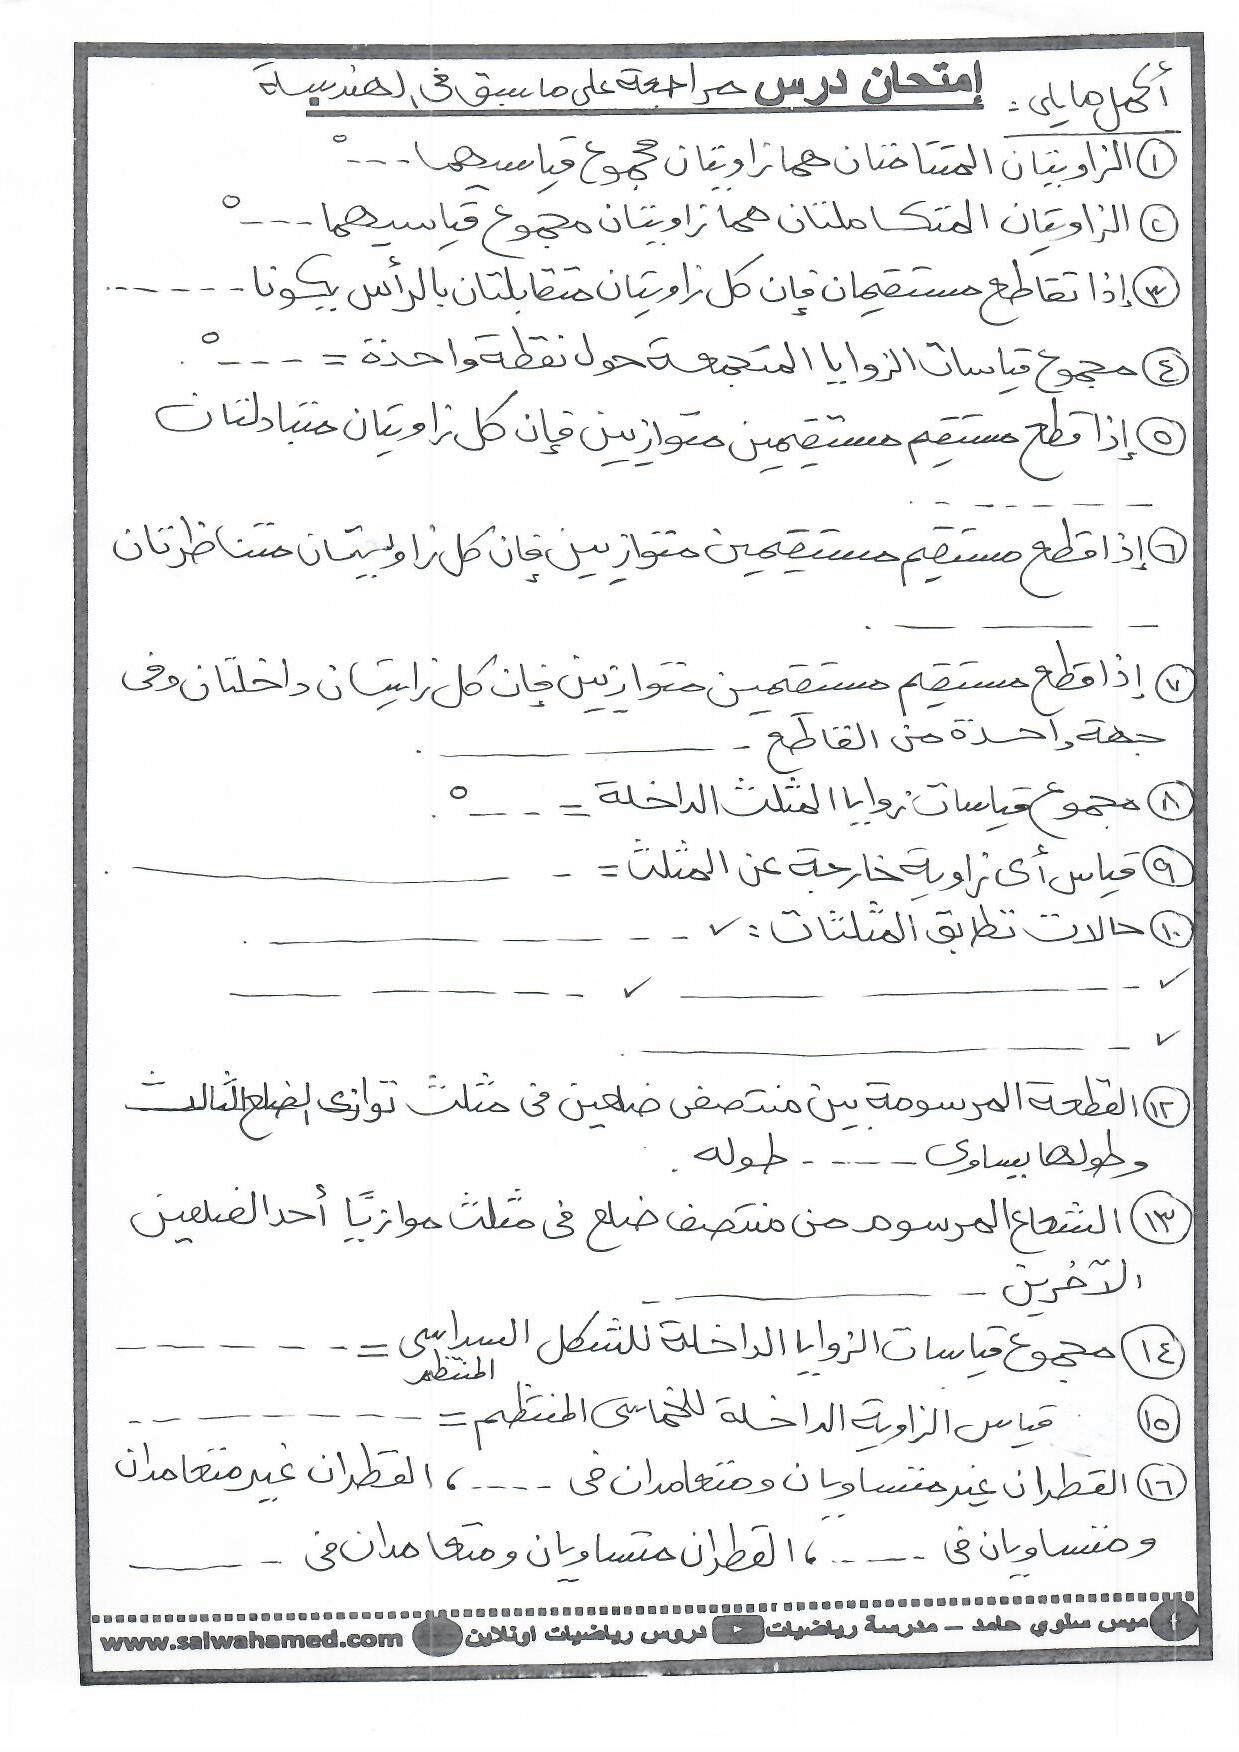 إمتحان درس مراجعة على ما سبق فى الهندسة
أكمل ما يلى :
١ الزاويتان المتتامتان هما زاويتان مجموع قياسيهما ---°
٢ الزاويتان المتكاملتان هما زاويتان مجموع قياسيهما ---°
٣ إذا تقاطع مستقيمان فإن كل زاويتان متقابلتان بالرأس يكونا ------
٤ مجموع قياسات الزوايا المتجمعة حول نقطة واحدة = ---° .
٥ إذا قطع مستقيم مستقيمين متوازيين فإن كل زاويتان متبادلتان
------ .
٦ إذا قطع مستقيم مستقيمين متوازيين فإن كل زاويتان متناظرتان
--- .
٧ إذا قطع مستقيم مستقيمين متوازيين فإن كل زايتان داخلتان وفى
جهة واحدة من القاطع --- .
٨ مجموع قياسات زوايا المثلث الداخلة = ---° .
٩ قياس أى زاوية خارجة عن المثلث = --- .
١٠ حالات تطابق المثلثات : ✓ ------ .
✓ ------ ✓ ------
✓ ------ .
١٢ القطعة المرسومة بين منتصفى ضلعين فى مثلث توازى الضلع الثالث
وطولها يساوى ---- طوله .
١٣ الشعاع المرسوم من منتصف ضلع فى مثلث موازيًا أحد الضلعين
الآخرين ------
١٤ مجموع قياسات الزوايا الداخلة للشكل السداسى = ------
المنتظم
١٥ قياس الزاوية الداخلة للخماسى المنتظم = --------
١٦ القطران غير متساويان ومتعامدان فى ---- ، القطران غير متعامدان
ومتساويان فى ---- ، القطران متساويان ومتعامدان فى ----
ميس سلوي حامد – مدرسة رياضيات دروس رياضيات اونلاين www.salwahamed.com